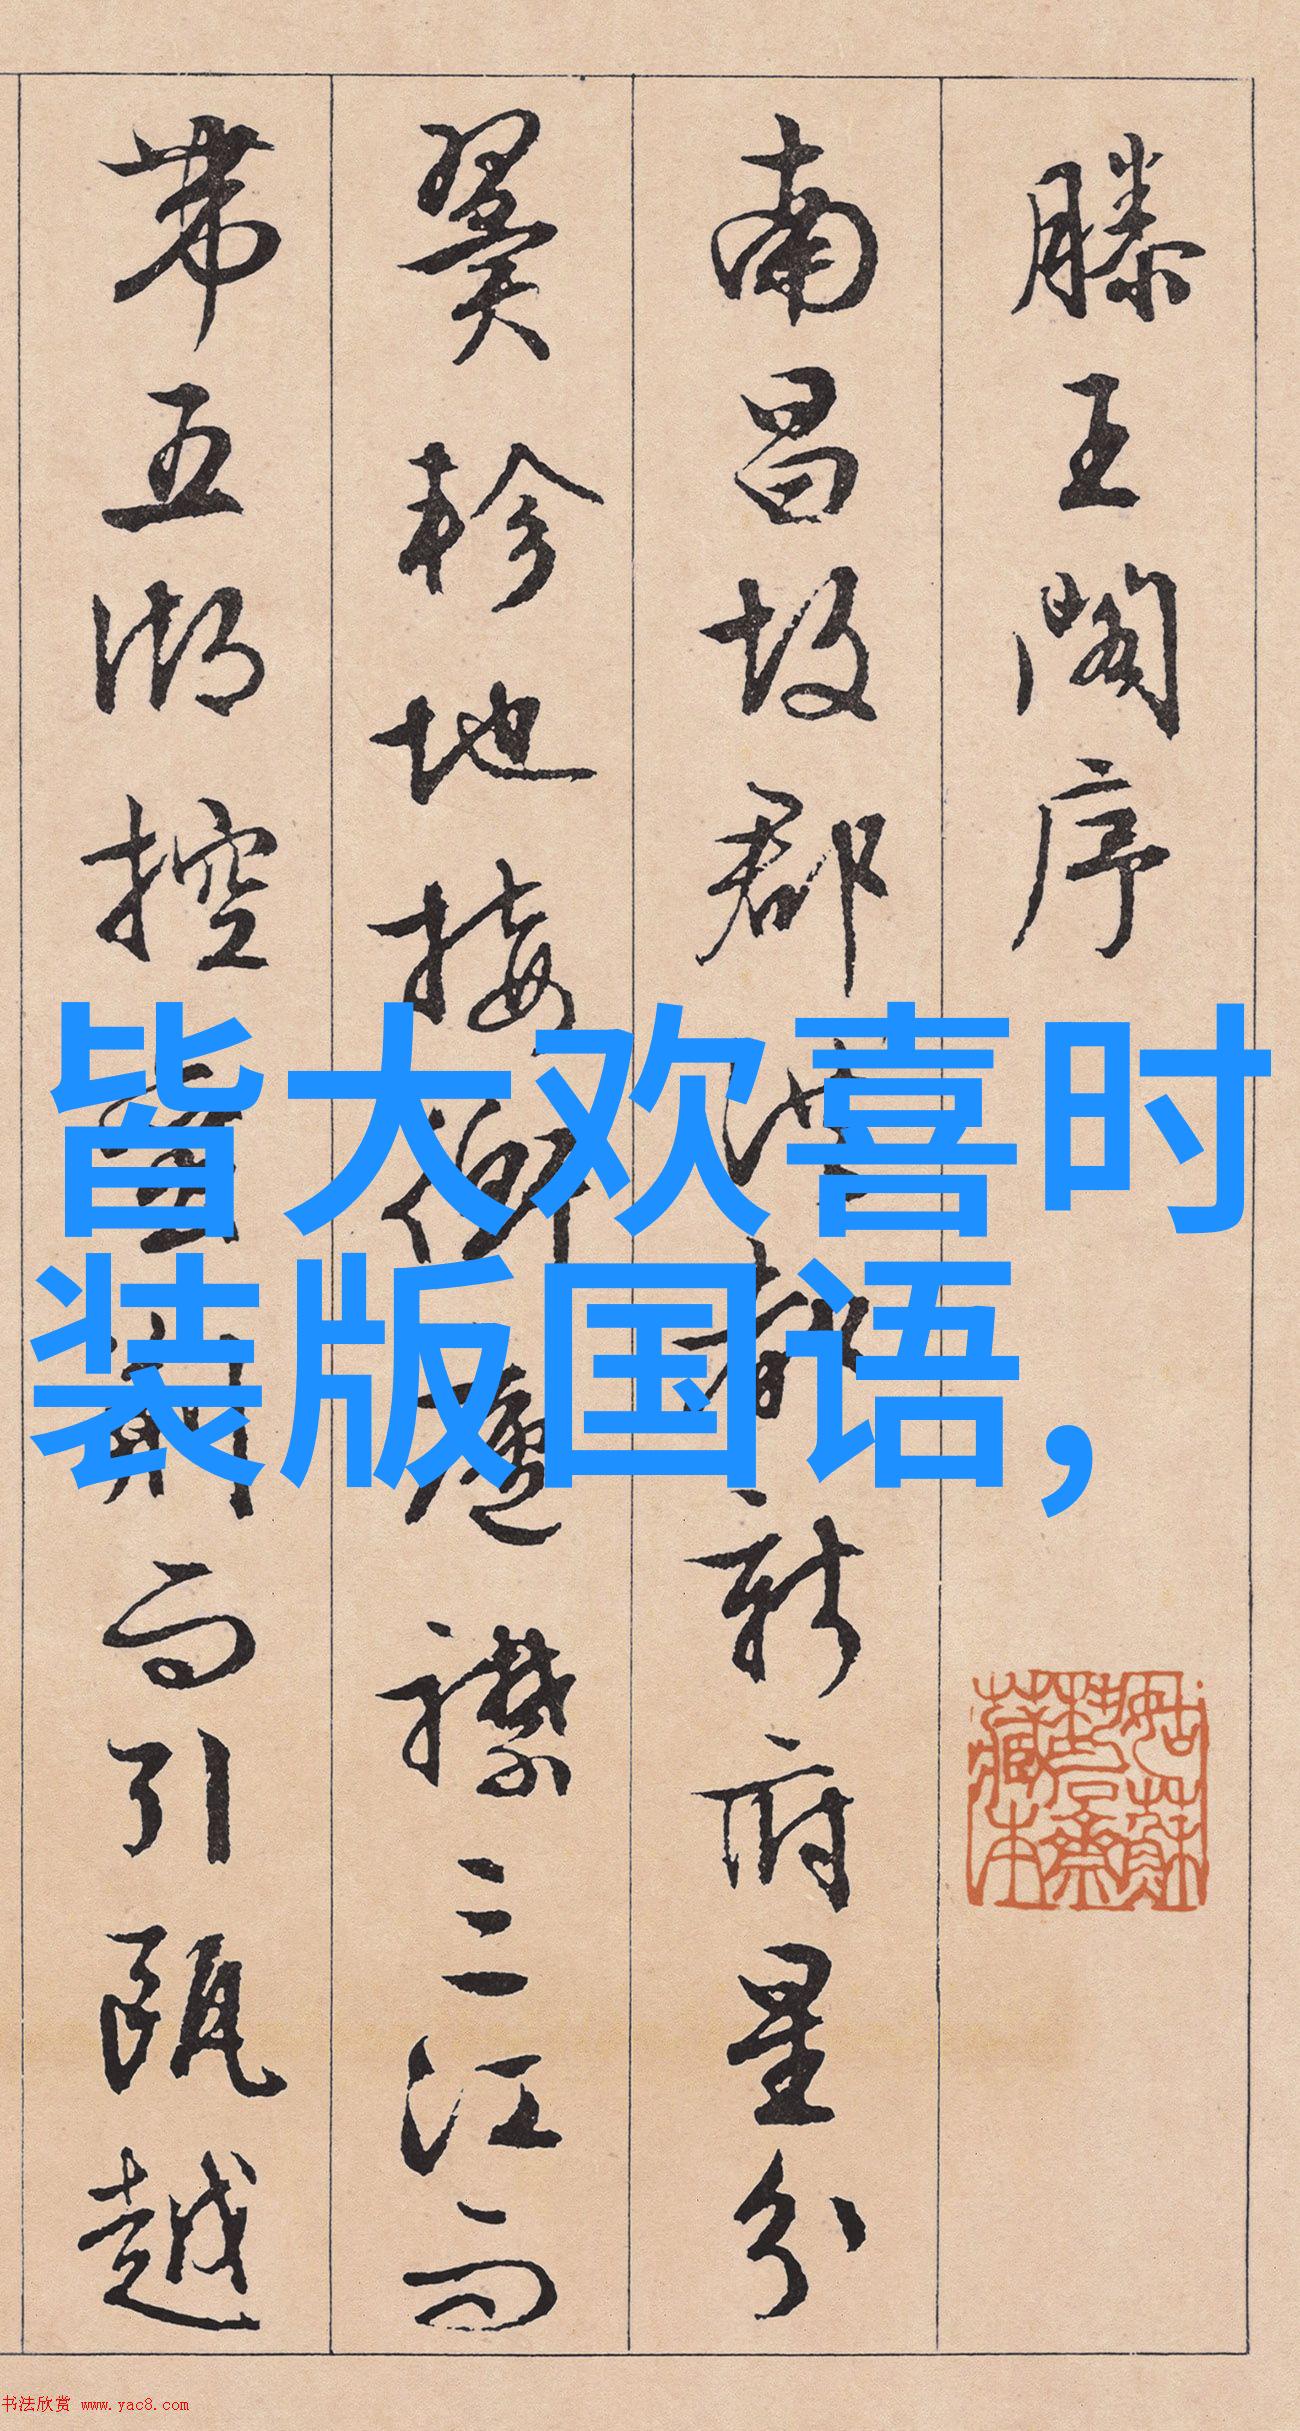 滕王阁序
南昌故郡洪都新府星分
翼轸地接衡庐襟三江而
带五湖控蛮荆而引瓯越
皆大欢喜时
装版国语，
书法欣赏 www.yac8.com